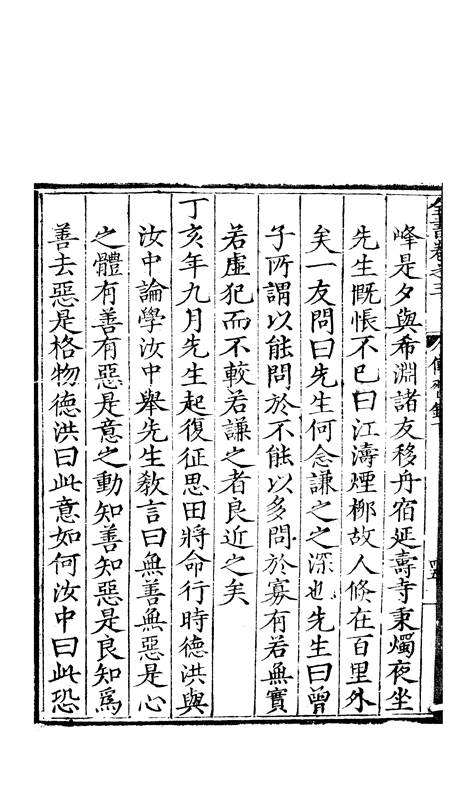 全書卷之三
傳習錄下
峰是夕與希淵諸友移舟宿延壽寺秉燭夜坐
先生慨悵不已曰江濤煙柳故人倐在百里外
矣一友問曰先生何念謙之之深也先生曰曾
子所謂以能問於不能以多問於寡有若無實
若虛犯而不較若謙之者良近之矣
丁亥年九月先生起復征思田將命行時德洪與
汝中論學汝中舉先生教言曰無善無惡是心
之體有善有惡是意之動知善知惡是良知爲
善去惡是格物德洪曰此意如何汝中曰此恐